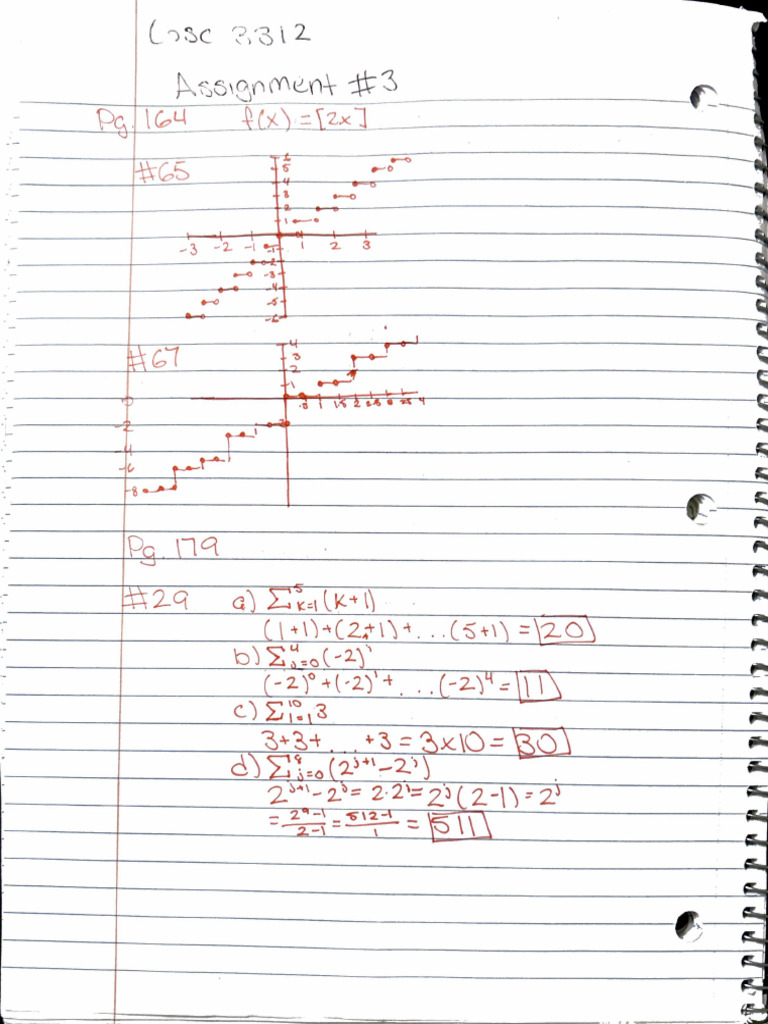 Cosc 3312
Assignment #3
Pg. 164 f(x) = [2x]
#65
6
5
4
3
2
1
-3 -2 -1 1 2 3
-1
-2
-3
-4
-5
-6
#67
4
3
2
1
0 .5 1 1.5 2 2.5 3 3.5 4
-2
-4
-6
-8
Pg. 179
#29 a) ∑⁵ₖ₌₁(k+1)
(1+1)+(2+1)+...(5+1) = 20
b) ∑⁴ⱼ₌₀(-2)ʲ
(-2)⁰+(-2)¹+ ...(-2)⁴= 11
c) ∑¹⁰ᵢ₌₁3
3+3+ ... +3 = 3x10 = 30
d) ∑⁸ⱼ₌₀(2ʲ⁺¹-2ʲ)
2ʲ⁺¹-2ʲ= 2·2ʲ= 2ʲ(2-1) = 2ʲ
= 2⁹-1/2-1 = 512-1/1 = 511